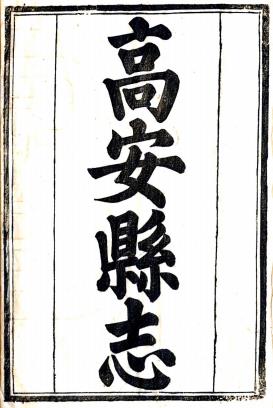 高安縣志